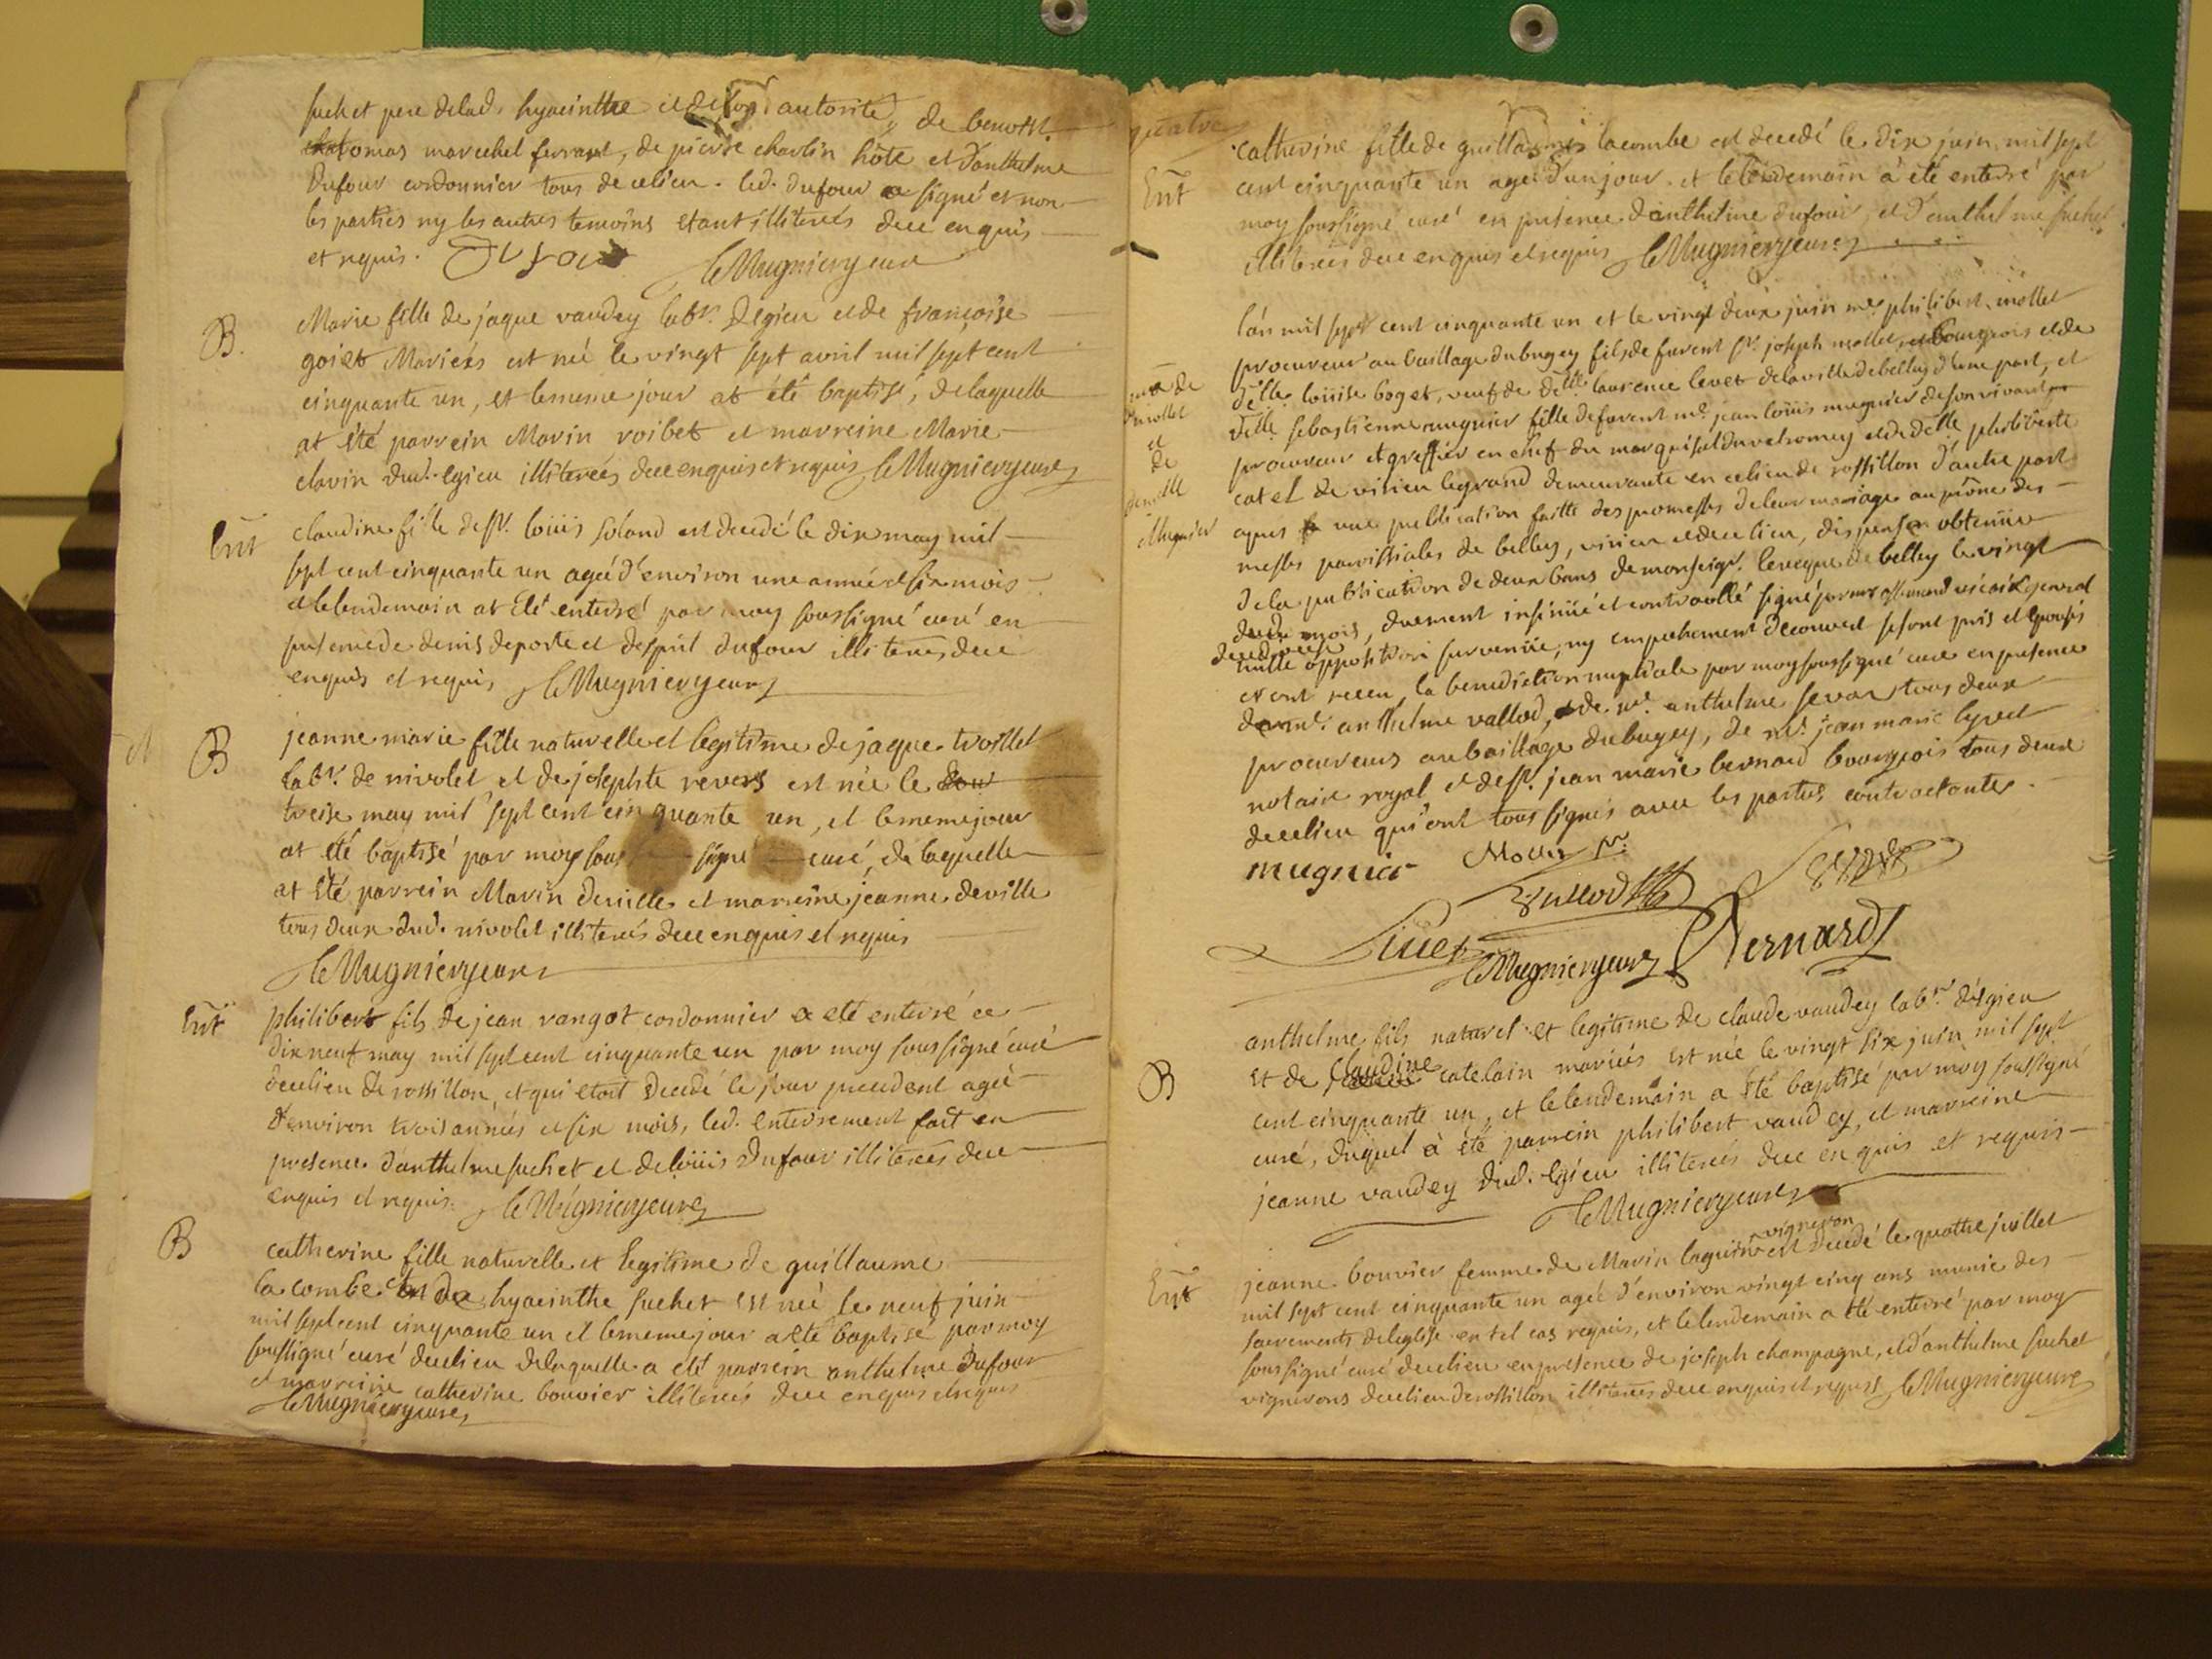 suchet pere delad. hyacinthe et de son autorité, de benoit
tomas marechel ferrant, de pierre charlin hôte et d'anthelme
dufour cordonnier tous de ce lieu. led. dufour a signé et non
les parties ny les autres temoins etant illiterés de ce enquis
et requis. Dufour LeMugnier curé
B. Marie fille de jaque vaudey labr. degieu et de francoise
goiet Mariés est né le vingt sept avril mil sept cent
cinquante un, et le meme jour at été baptisé, de laquelle
at été parrein Marin roibet et marreine Marie
clavin dud. egieu illiterés de ce enquis et requis LeMugnier curé
Ent claudine fille de sr. loüis soland est decedé le dix may mil
sept cent cinquante un ageé d'environ une année et six mois
et le lendemain at été enterré par moy soussigné curé en
presence de denis deporte et despril dufour illiterés de ce
enquis et requis LeMugnier curé
B jeanne marie fille naturelle et legitime de jaque trollet
labr. de nivolet et de josephte revers est née le
treise may mil sept cent cinquante un, et le meme jour
at été baptisé par moy sous signé curé, de laquelle
at été parrein Marin deville et marreine jeanne deville
tous deux dud. nivolet illiterés de ce enquis et requis
LeMugnier curé
Ent philibert fils de jean vangot cordonnier a eté enterré ce
dixneuf may mil sept cent cinquante un par moy soussigné curé
de ce lieu de rossillon, et qui etoit decedé le jour precedent ageé
d'environ trois années et six mois, led. enterrement fait en
presence d'anthelme suchet et de loüis dufour illiterés de ce
enquis et requis. LeMugnier curé
B catherine fille naturelle et legitime de guillaume
la combe et de hyacinthe suchet est née le neuf juin
mil sept cent cinquante un et le meme jour a eté baptisé par moy
soussigné curé de ce lieu de laquelle a eté parrein anthelme dufour
et marreine catherine bouvier illiterés de ce enquis et requis
LeMugnier curé
quatre
catherine fille de guillaume lacombe est decedé le dix juin mil sept
Ent cent cinquante un ageé d'un jour. et le lendemain à été enterré par
moy soussigné curé en presence d'anthelme dufour, et d'anthelme suchet
illiterés de ce enquis et requis LeMugnier curé
l'an mil sept cent cinquante un et le vingt deux juin me. philibert mollet
procureur au baillage du bugey fils de furent sr. joseph mollet bourgeois et de
delle. loüise boget, veuf de delle. laurence levet de la ville de belley d'une part, et
delle. sebastienne mugnier fille de furent me. jean loüis mugnier de son vivant
procureur et greffier en chef du marquisat du valromey et de delle philiberte
catel de virieu le grand demeurante en ce lieu de rossillon d'autre part
apres une publication faitte des promesses de leur mariage au prône des
messes parroissiales de belley, virieu et de ce lieu, dispense obtenüe
de la publication de deux bans de monseigr. leveque de belley le vingt
dudit mois, duement insinüé et controollé signé vicaire general
nulle opposition survenüe, ny empechement decouvert se sont pris et epousés
et ont receu la benediction nuptiale par moy soussigné curé en presence
de me. anthelme vallod, et de me. anthelme sevoz tous deux
procureurs au baillage du bugey, de me. jean marie lyvet
notaire royal et de sr. jean marie bernard bourgeois tous deux
de ce lieu qui ont tous signés avec les parties contractantes.
mugnier Mollet
Vallod
LeMugnier curé Bernard
anthelme fils naturel et legitime de claude vaudey labr. d'egieu
et de claudine catelain mariés est née le vingt six juin mil sept
B cent cinquante un, et le lendemain a été baptisé par moy soussigné
curé, duquel à été parrein philibert vaudey, et marreine
jeanne vaudey dud. egieu illiterés de ce enquis et requis
LeMugnier curé
vigneron
jeanne bouvier femme de Marin laguin est decedé le quattre juillet
Ent mil sept cent cinquante un ageé d'environ vingt cinq ans munie des
sacrements de l'eglise en tel cas requis, et le lendemain a eté enterré par moy
soussigné curé de ce lieu en presence de joseph champagne, et d'anthelme suchet
vignerons de ce lieu de rossillon illiterés de ce enquis et requis LeMugnier curé